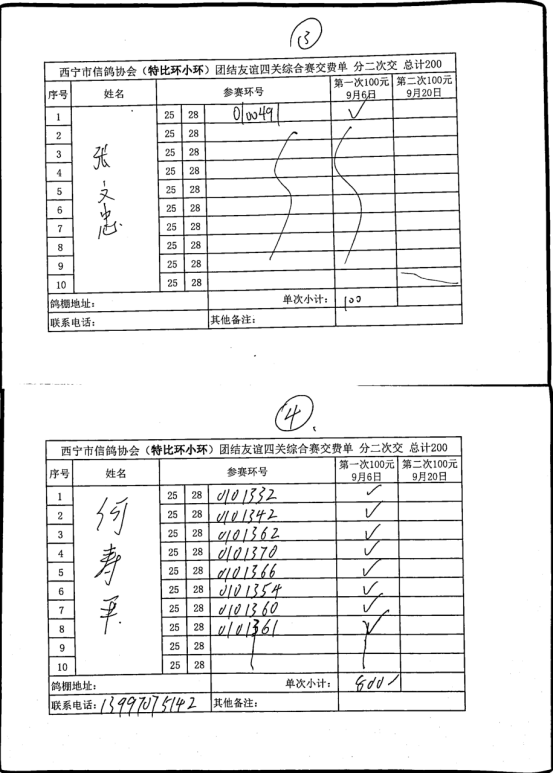 ③
西宁市信鸽协会（特比环小环）团结友谊四关综合赛交费单 分二次交 总计200
序号 姓名 参赛环号 第一次100元 第二次100元
9月6日 9月20日
1 25 28 010049 ✓
2 25 28
3 25 28
张文忠
4 25 28
5 25 28
6 25 28
7 25 28
8 25 28
9 25 28
10 25 28
鸽棚地址： 单次小计： 100
联系电话： 其他备注：
④
西宁市信鸽协会（特比环小环）团结友谊四关综合赛交费单 分二次交 总计200
序号 姓名 参赛环号 第一次100元 第二次100元
9月6日 9月20日
1 25 28 0101332 ✓
2 25 28 0101342 ✓
何寿平
3 25 28 0101362 ✓
4 25 28 0101370 ✓
5 25 28 0101366 ✓
6 25 28 0101354 ✓
7 25 28 0101360 ✓
8 25 28 0101361 ✓
9 25 28
10 25 28
鸽棚地址： 单次小计： 800
联系电话：13997075142 其他备注：